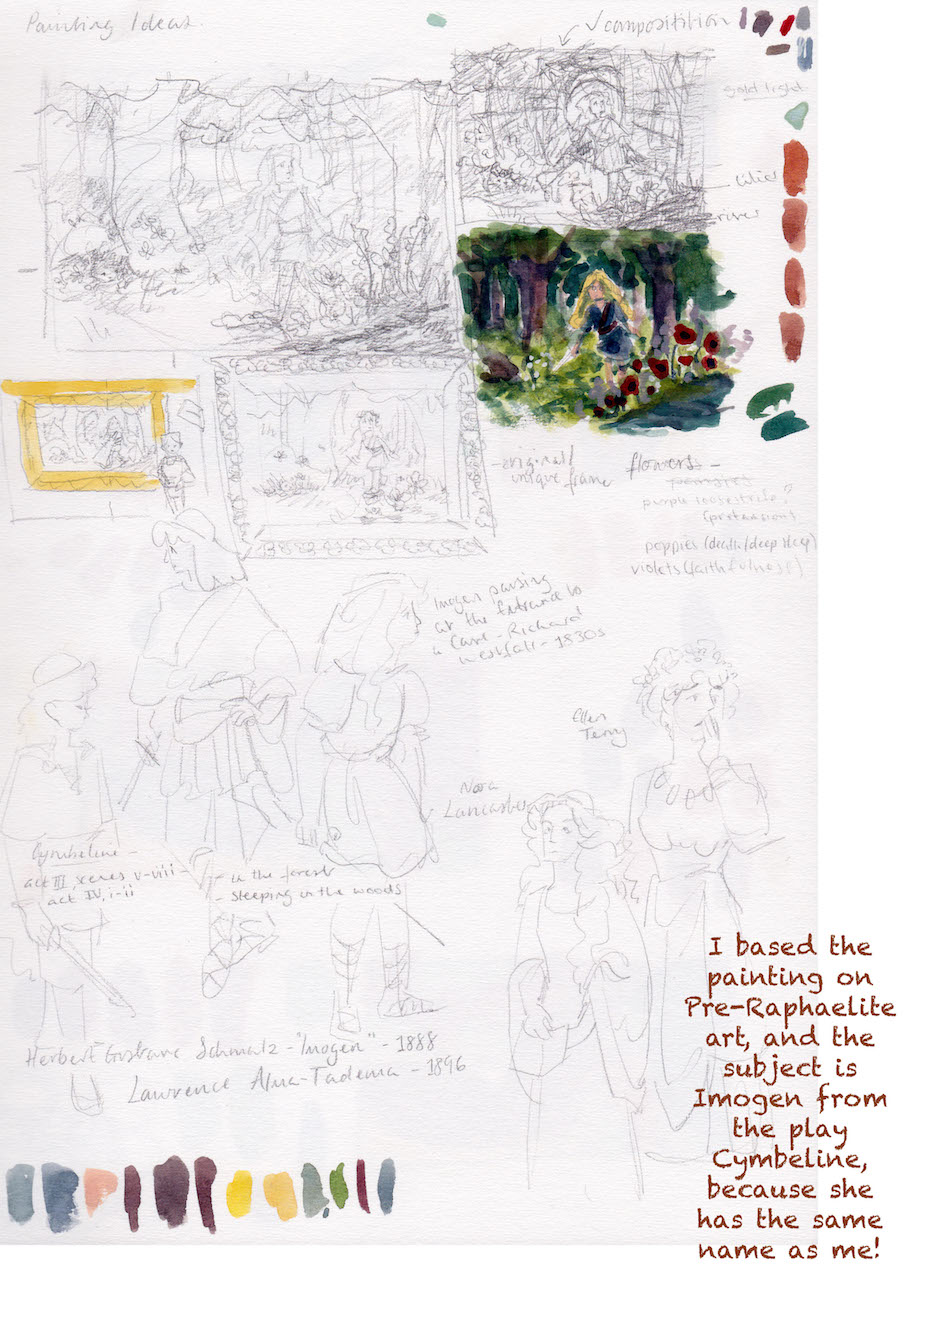 Painting Ideas.
composition
gold light
lilies
river
- original/
unique frame
flowers -
pansies
purple loosestrife?
(pretension)
poppies (death/deep sleep)
violets (faithfulness)
Imogen pausing
at the entrance to
a Cave - Richard
Westfall - 1830s
Ellen
Terry
Nora
Lancaster
Cymbeline -
act III, scenes v-viii -
act IV, i-ii
- in the forest
- sleeping in the woods
Herbert Gustave Schmalz - "Imogen" - 1888
Lawrence Alma-Tadema - 1896
I based the
painting on
Pre-Raphaelite
art, and the
subject is
Imogen from
the play
Cymbeline,
because she
has the same
name as me!